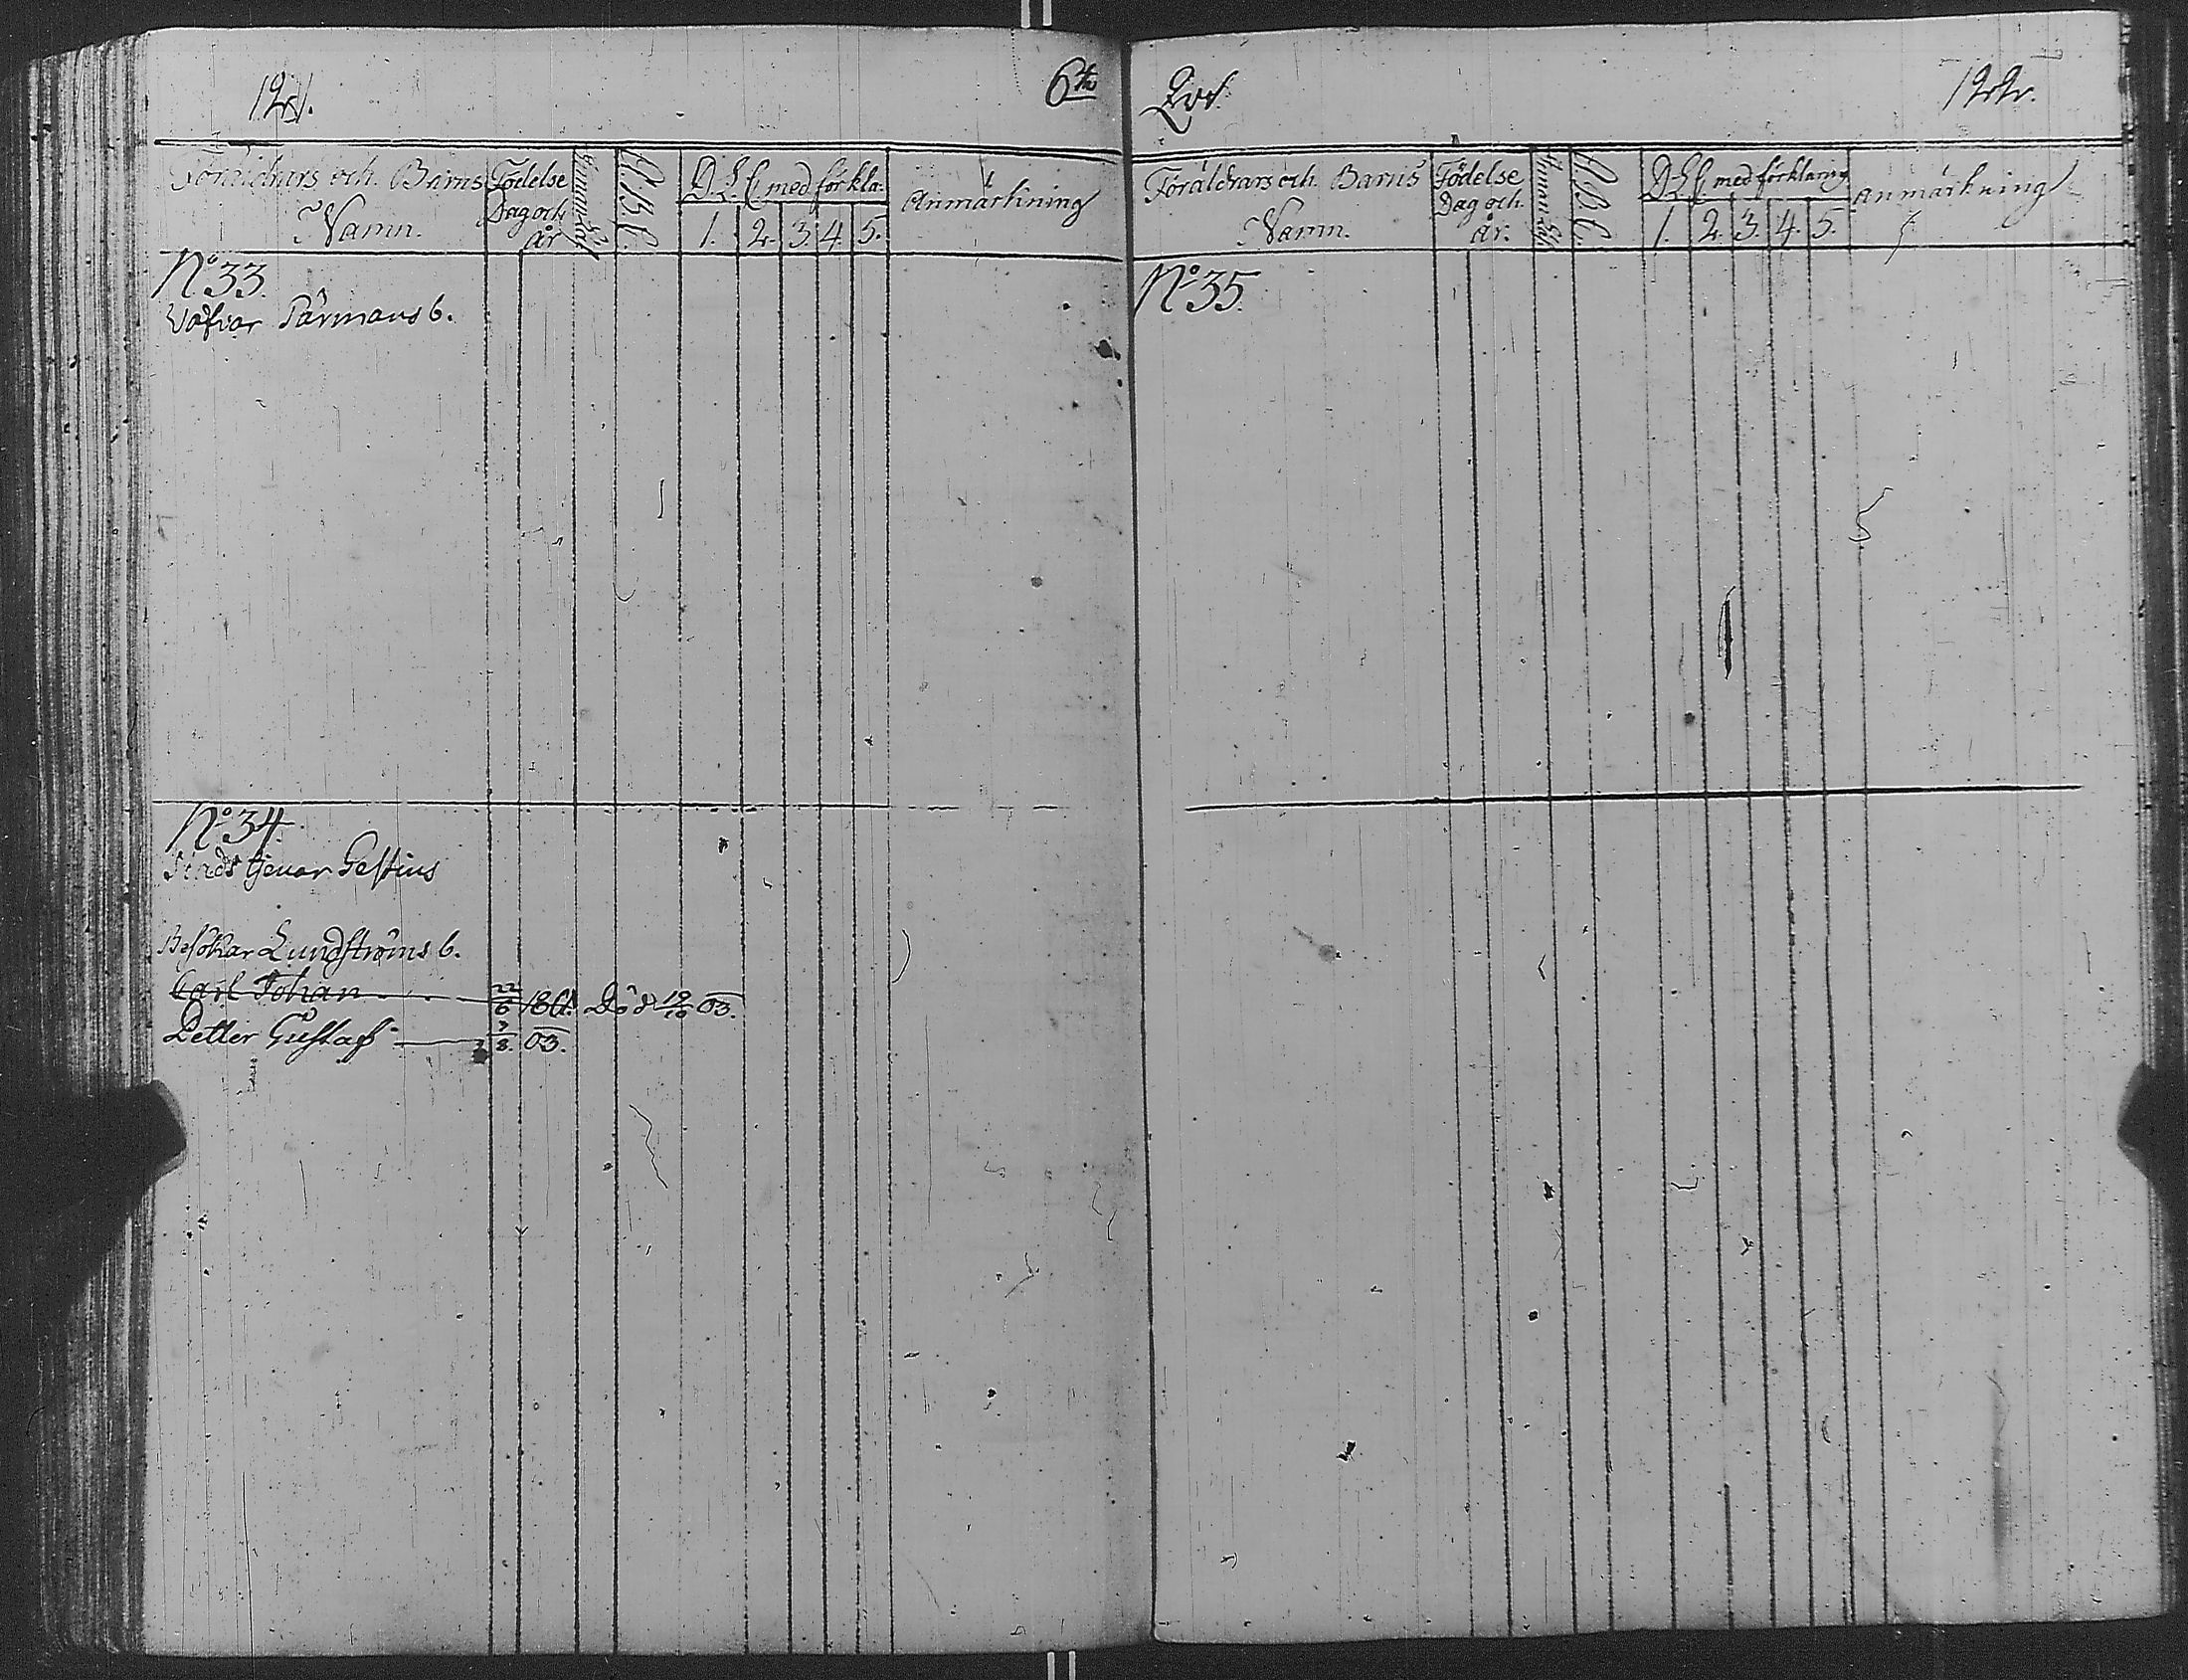 121.
6te
Föräldrars och Barns
Namn.
Födelse
Dag och
år
A.B.C.
D.L.C. med förkla:
1. 2. 3. 4. 5.
Anmärkning
No 33.
Väfvar Pärmans b.
No 34.
Stads tjenar Gestius
Besökar Lundströms b.
Carl Johan 22/6 1801. Död 19/10 03.
Petter Gustaf 7/8. 03.
Qvt.
122.
Föräldrars och Barns
Namn.
Födelse
Dag och
år.
A.B.C.
D.L.C. med förklaring
1. 2. 3. 4. 5.
Anmärkning
No 35.